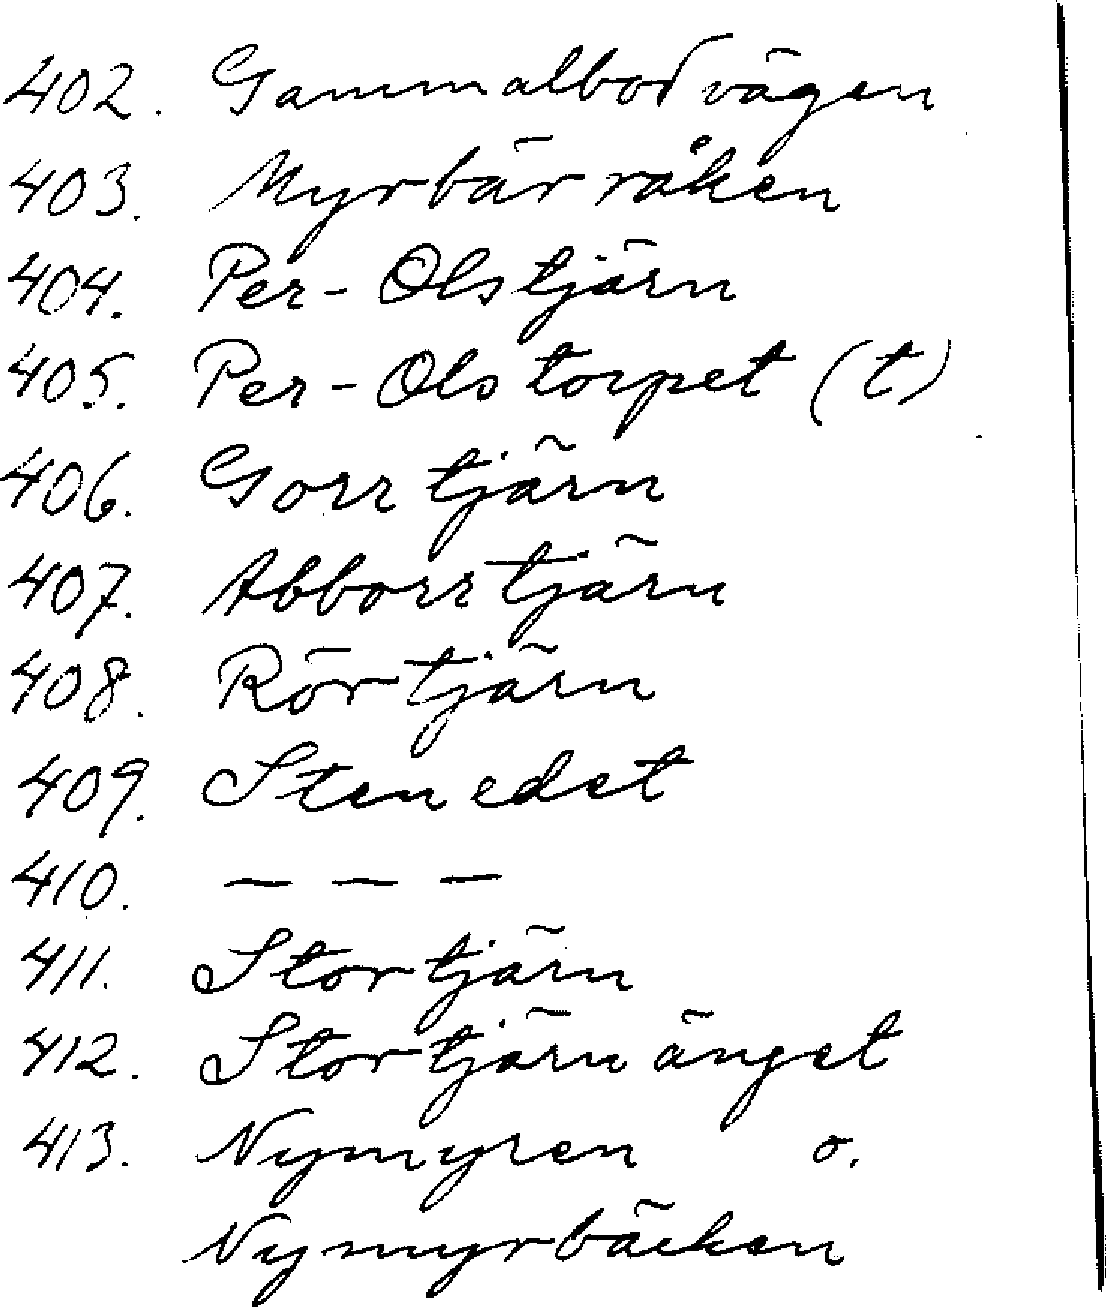 402. Gammalbodvägen
403. Myrbärråken
404. Per-Olstjärn
405. Per-Olstorpet (t)
406. Gorrtjärn
407. Abborrtjärn
408. Rörtjärn
409. Stenedet
410. — — —
411. Stortjärn
412. Stortjärnänget
413. Nymyren o.
Nymyrbäcken